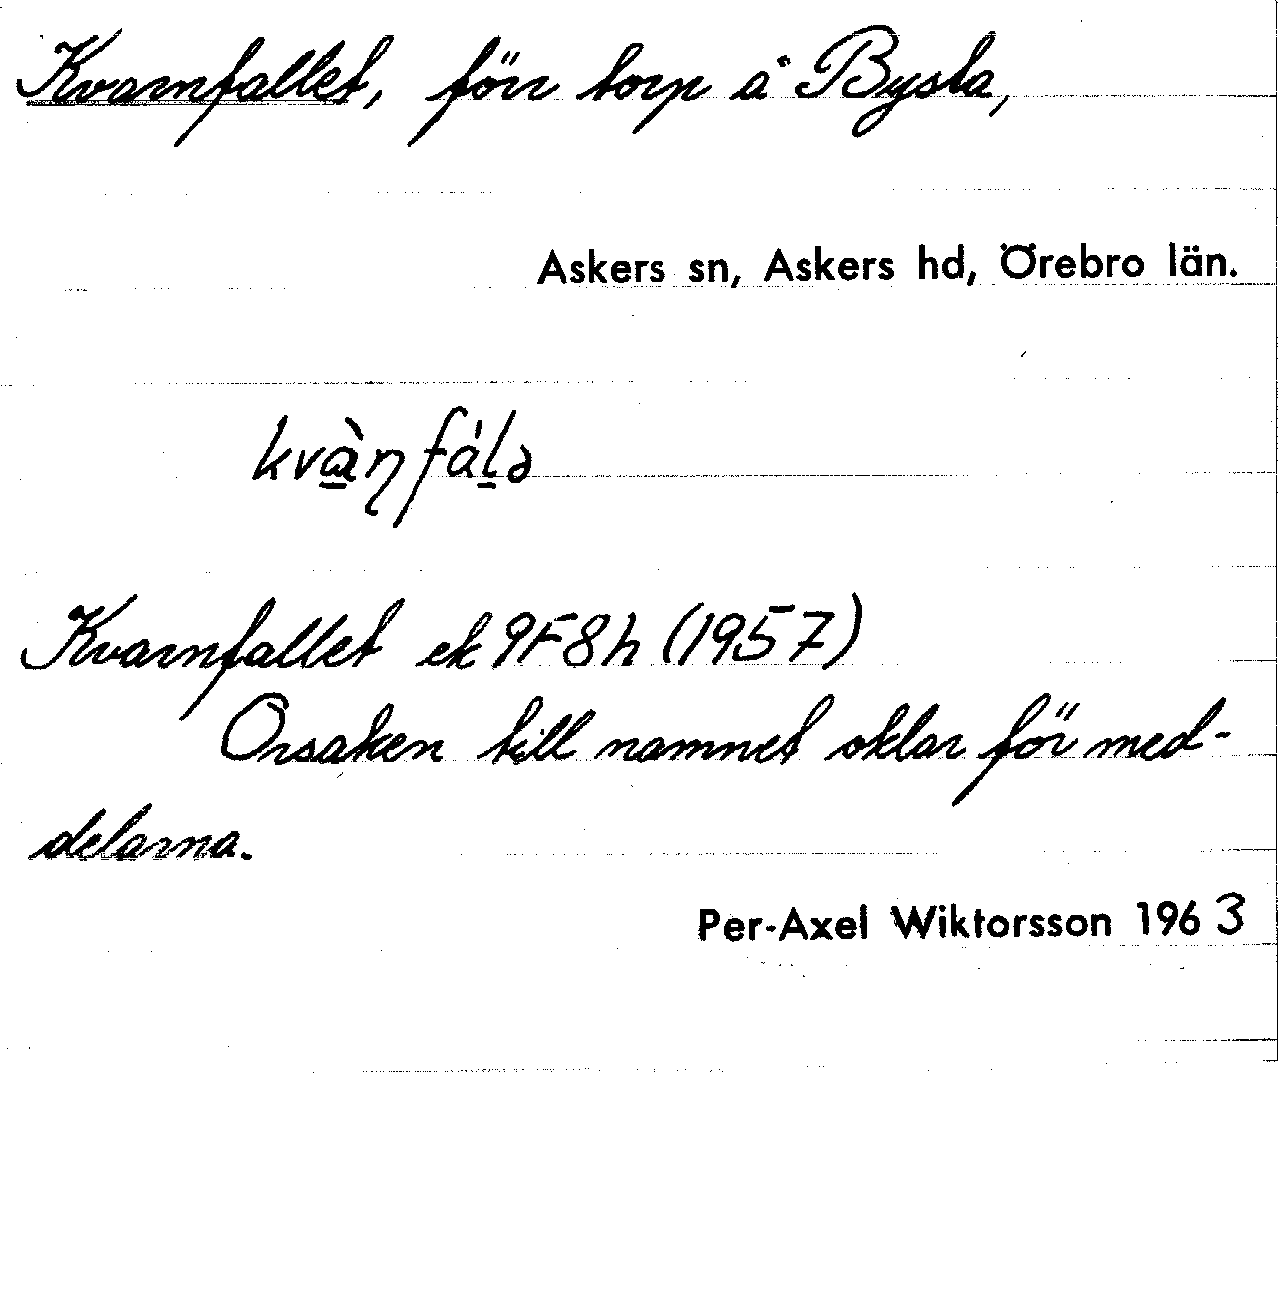 Kvarnfallet, förr torp å Bysta,
Askers sn, Askers hd, Örebro län.
kvàṉfáḻə
Kvarnfallet ek 9F8h (1957)
Orsaken till namnet oklar för med-
delarna.
Per-Axel Wiktorsson 1963